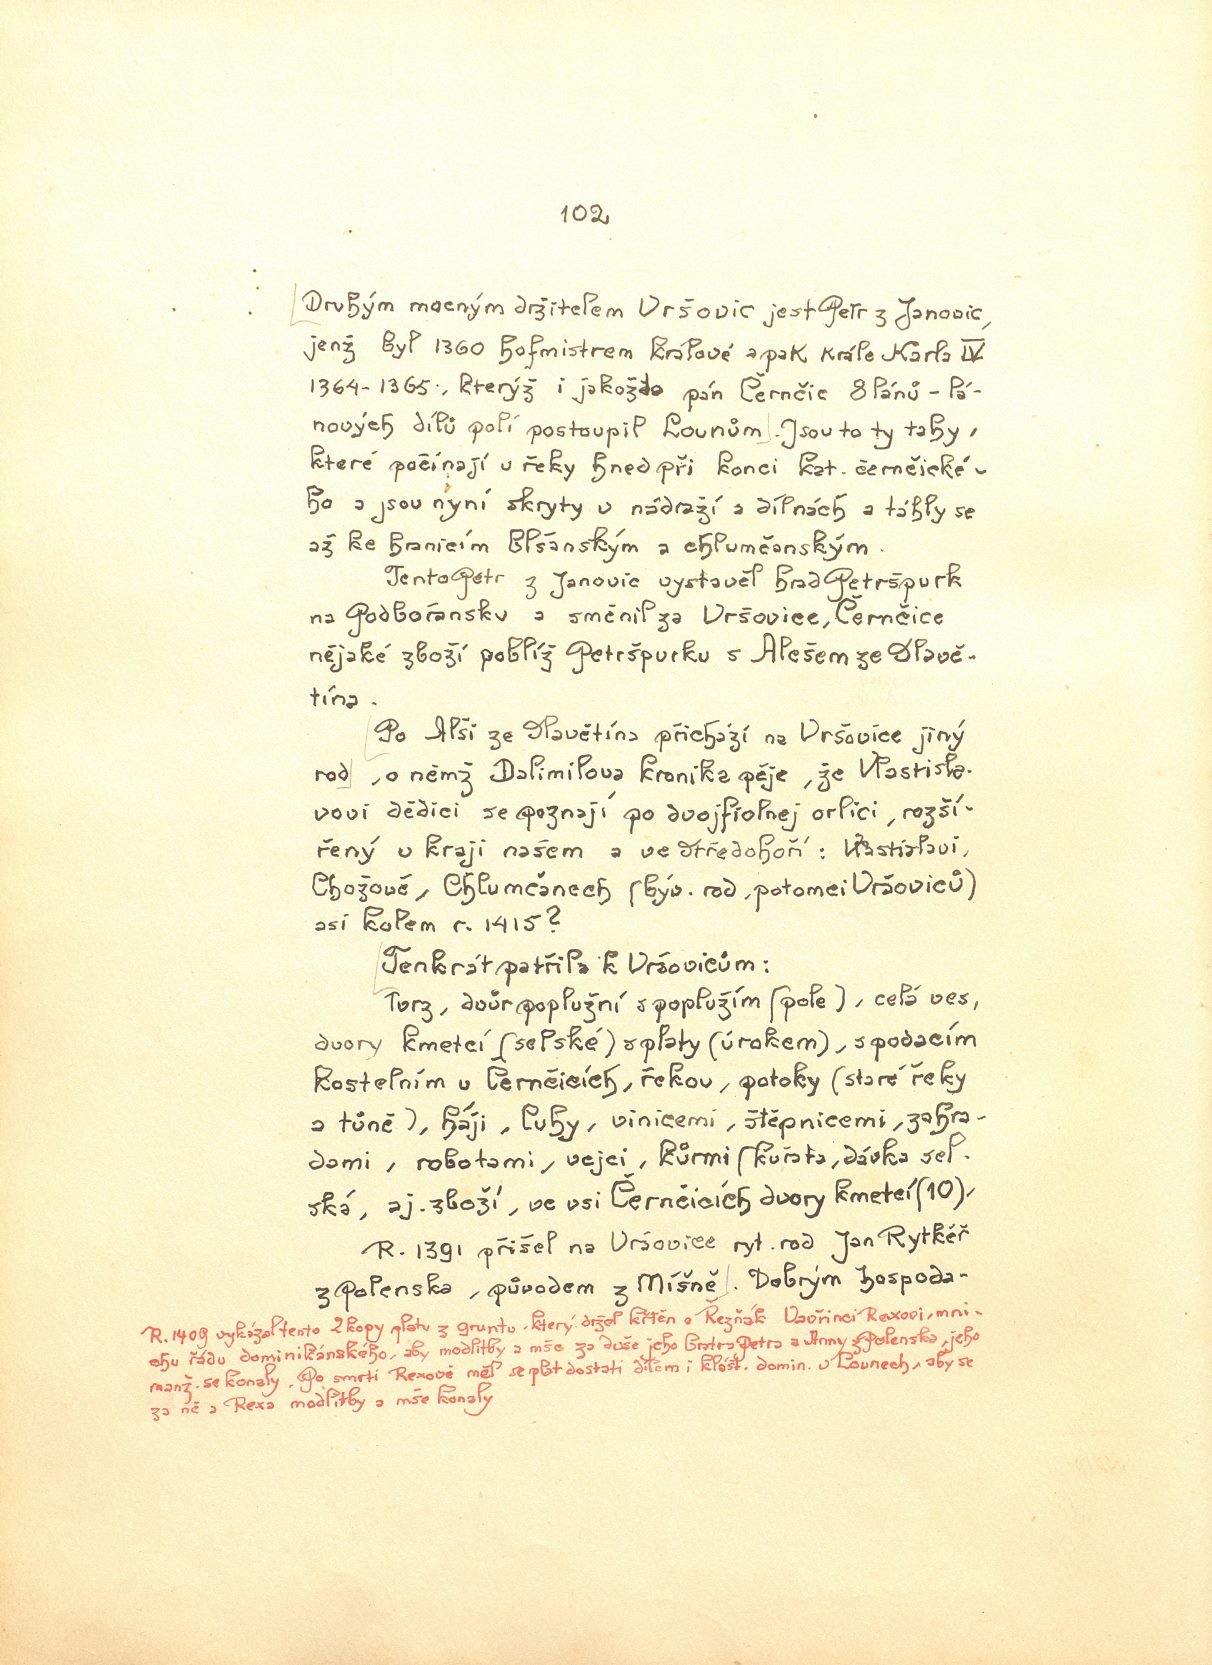 102
Druhým mocným držitelem Vršovic jest Petr z Janovic,
jenž byl 1360 hofmistrem králové a pak krále Karla IV
1364-1365., kterýž i jakožto pán Černčic 8 lánů - lá-
nových dílů polí postoupil Lounům. Jsou to ty tahy,
které počínají u řeky hned při konci kat. černčické-
ho a jsou nyní skryty v nádraží a dílnách a táhly se
až ke hranicím blšanským a chlumčanským.
Tento Petr z Janovic vystavěl hrad Petršpurk
na Podbořansku a směnil za Vršovice, Černčice
nějaké zboží poblíž Petršpurku s Alešem ze Slavě-
tína.
Po Alši ze Slavětína přichází na Vršovice jiný
rod, o němž Dalimilova kronika pěje, že Vlastisla-
vovi dědici se poznají po dvojfiolnej orlici, rozší-
řený v kraji našem a ve Středohoří: Vlastislavi,
Chožově, Chlumčanech (býv. rod, potomci Vršoviců)
asi kolem r. 1415?
Tenkrát patřila k Vršovicům:
Tvrz, dvůr poplužní s poplužím (pole), celá ves,
dvory kmetcí (selské) s platy (úrokem), s podacím
kostelním v Černčicích, řekou, potoky (staré řeky
a tůně), háji, luhy, vinicemi, štěpnicemi, zahra-
dami, robotami, vejci, kůrmi (kuřata, dávka sel-
ská, aj. zboží, ve vsi Černčicích dvory kmetcí (10),
R. 1391 přišel na Vršovice ryt. rod Jan Rytkéř
z Polenska, původem z Míšně. Dobrým hospoda-
R. 1409 vykázal tento 2 kopy platu z gruntu, který držel křtěn a Řezňák Vavřinci Rexovi, mni-
chu řádu dominikánského, aby modlitby a mše za duše jeho bratra Petra a Anny z Polenska, jeho
manž. se konaly. Po smrti Rexově měl se plat dostati dílem i klášt. domin. v Lounech, aby se
za ně a Rexa modlitby a mše konaly